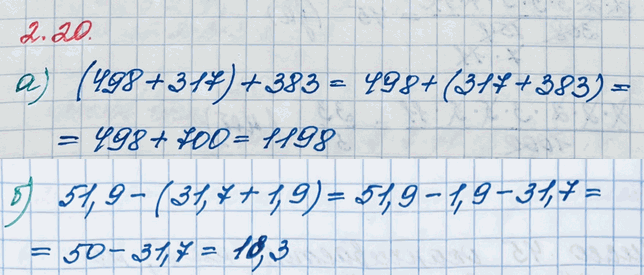 2.20.
а) (498+317)+383 = 498+(317+383) =
= 498+700 = 1198
б) 51,9-(31,7+1,9) = 51,9-1,9-31,7 =
= 50-31,7 = 18,3